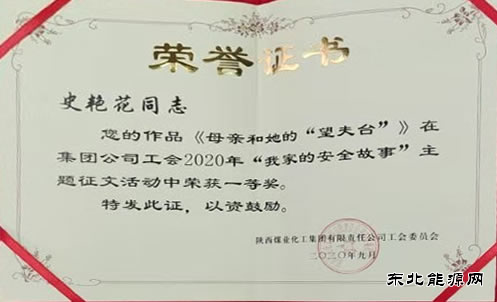 荣誉证书
史艳花同志
您的作品《母亲和她的“望夫台”》在
集团公司工会2020年“我家的安全故事”主
题征文活动中荣获一等奖。
特发此证，以资鼓励。
陕西煤业化工集团有限责任公司工会委员会
二〇二〇年九月
东北能源网